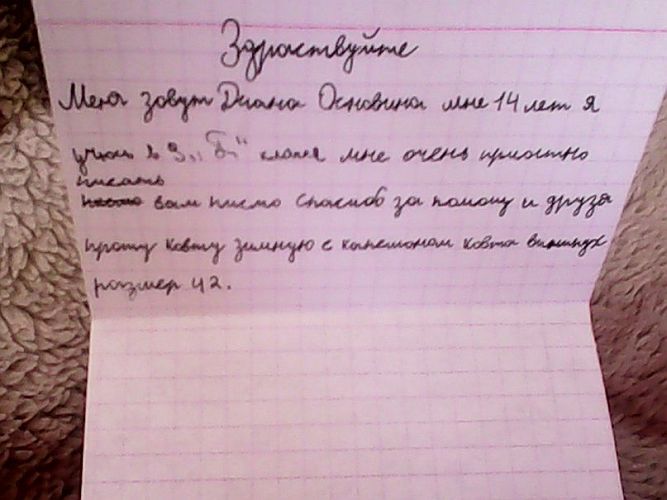 Здраствуйте
Меня зовут Диана Основина мне 14 лет я
учюсь в 9 „Б" класе мне очень приятно
писать
вам писмо спасиб за помощ и друзя
прошу ковту зимную с капешоном ковта
размер 42.